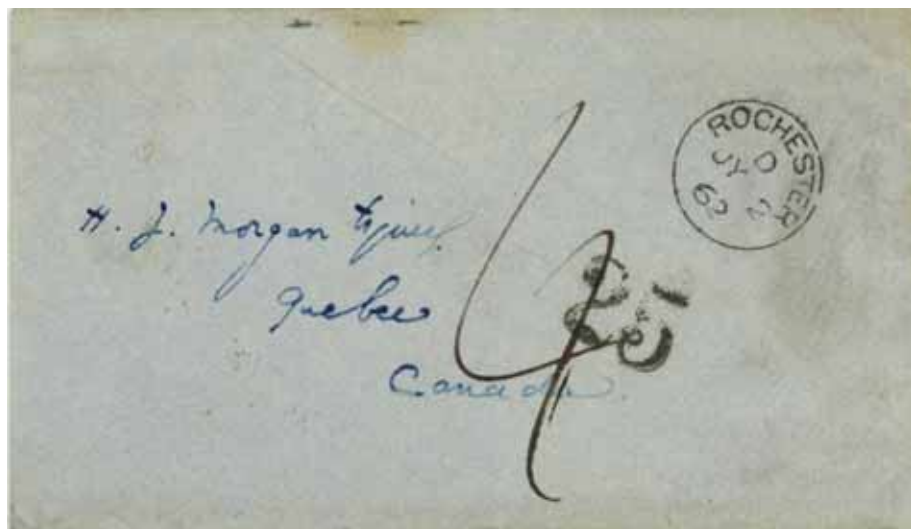 ROCHESTER
D
JY 2
62
H. J. Morgan Esquire
Quebec
Canada